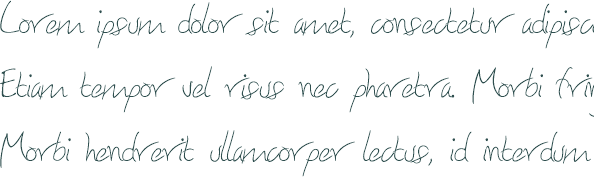 Lorem ipsum dolor sit amet, consectetur adipisc
Etiam tempor vel risus nec pharetra. Morbi frin
Morbi hendrerit ullamcorper lectus, id interdum